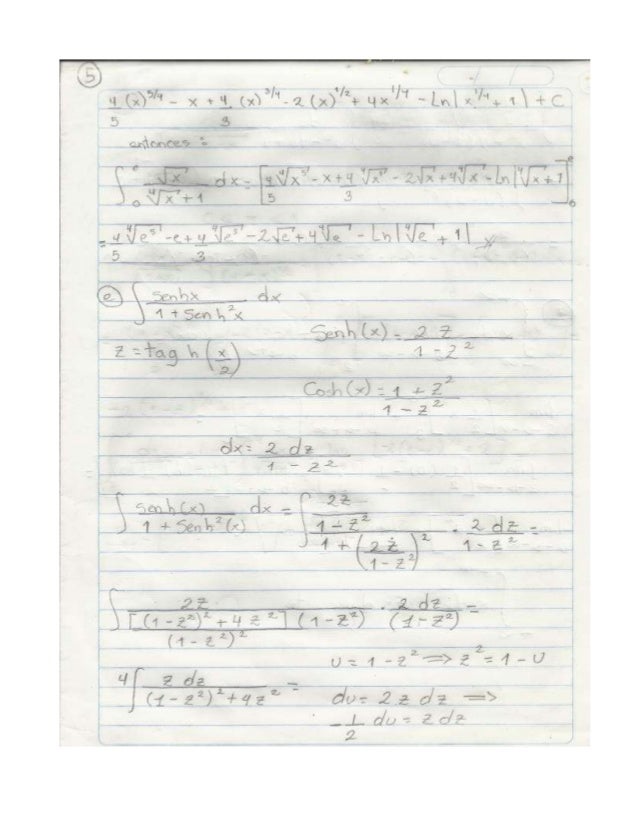 5
4/5 (x)^5/4 - x + 4/3 (x)^3/4 - 2 (x)^1/2 + 4x^1/4 - Ln|x^1/4 + 1| + C
entonces:
∫₀^e √x / (⁴√x + 1) dx = [4/5 ⁴√x⁵ - x + 4/3 ⁴√x³ - 2√x + 4⁴√x - Ln|⁴√x + 1|]₀^e
= 4/5 ⁴√e⁵ - e + 4/3 ⁴√e³ - 2√e + 4⁴√e - Ln|⁴√e + 1|
e ∫ Senhx / (1 + Senh²x) dx
Senh(x) = 2z / (1 - z²)
z = tagh (x/2)
Cosh(x) = (1 + z²) / (1 - z²)
dx = 2 dz / (1 - z²)
∫ Senh(x) / (1 + Senh²(x)) dx = ∫ (2z / (1 - z²)) / (1 + (2z / (1 - z²))²) · 2 dz / (1 - z²) =
∫ 2z / ([(1 - z²)² + 4z²] (1 - z²) / (1 - z²)²) · 2 dz / (1 - z²) =
u = 1 - z² => z² = 1 - u
4∫ z dz / ((1 - z²)² + 4z²) =
du = 2z dz =>
-1/2 du = z dz